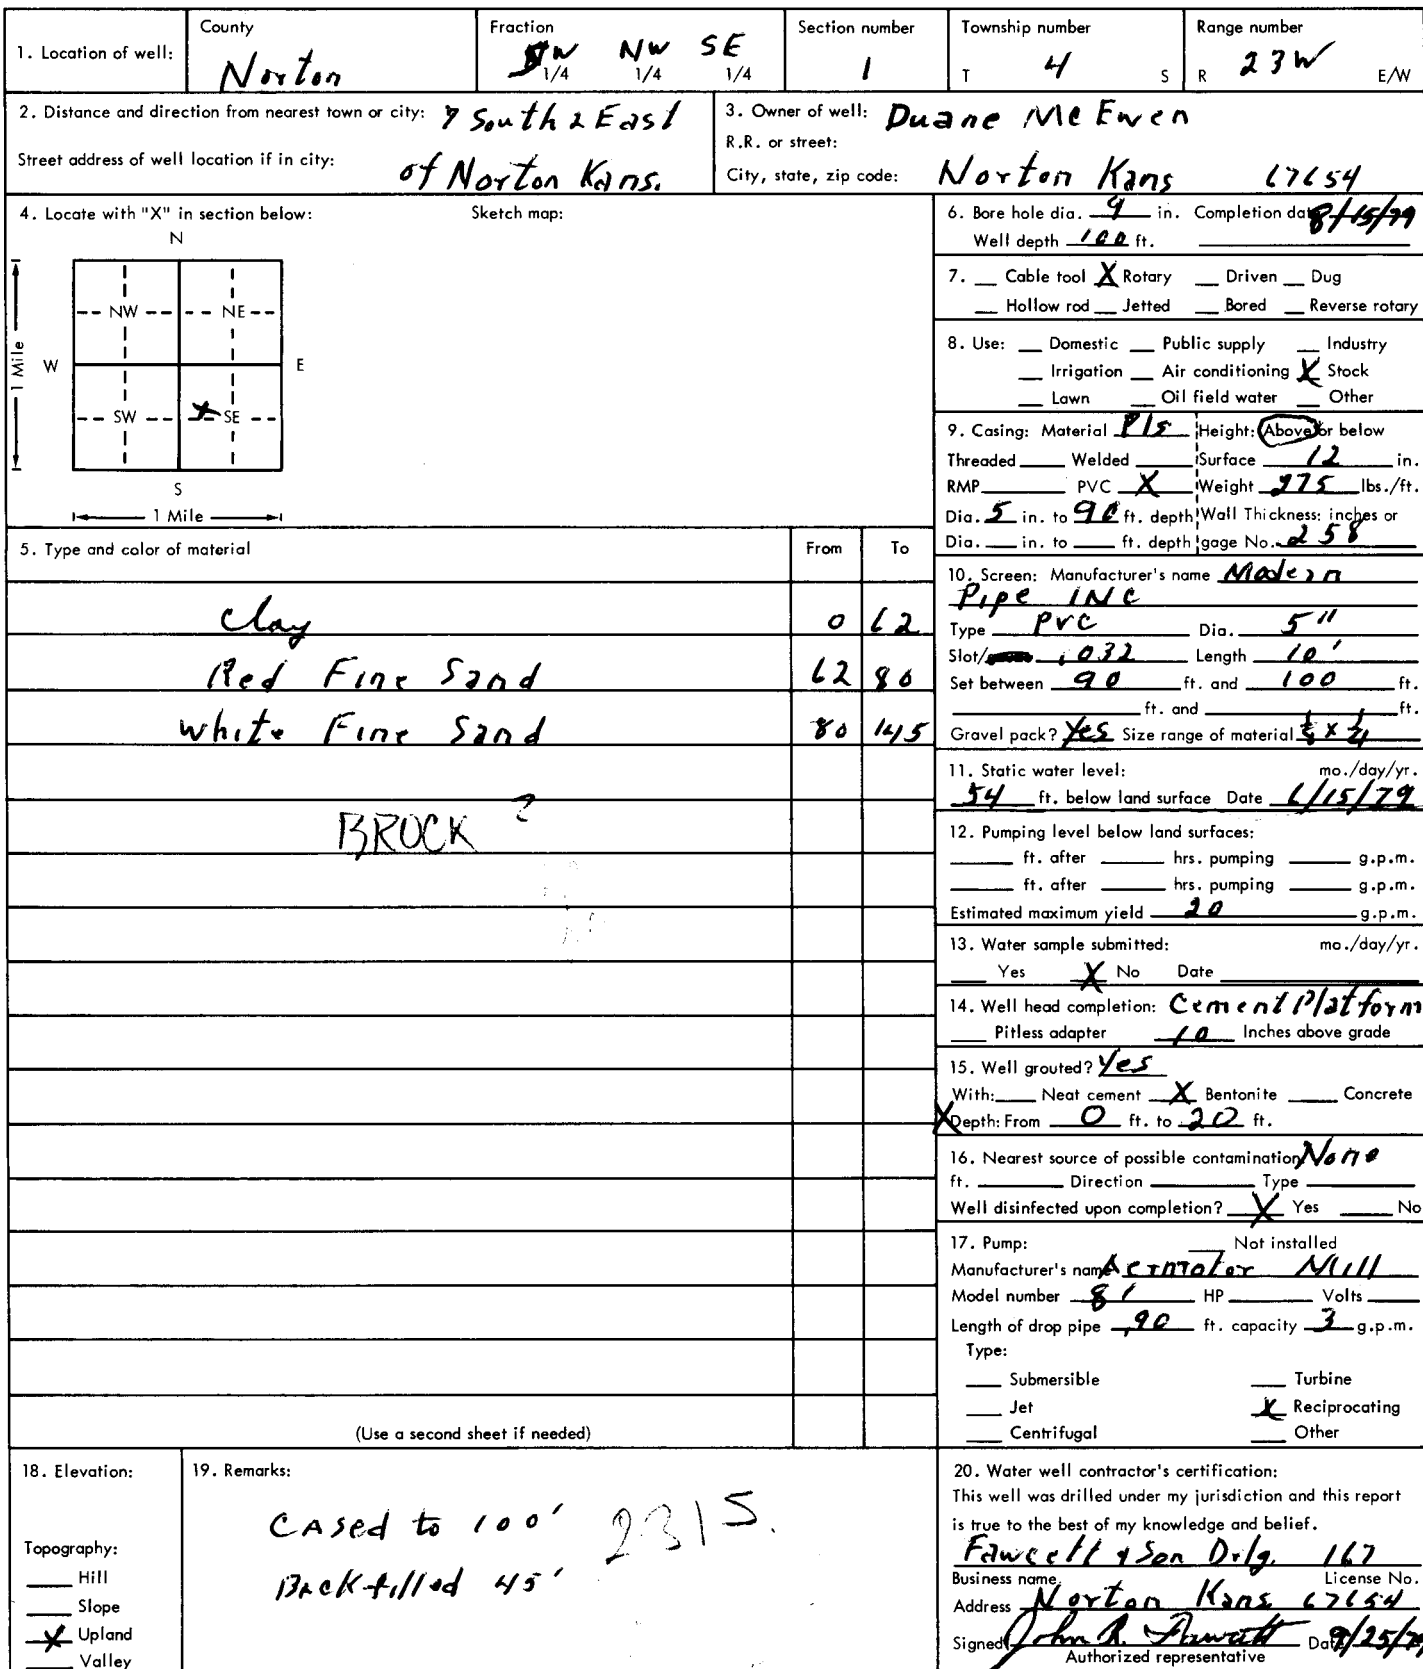 1. Location of well:
County
Norton
Fraction
NW SE
1/4 1/4 1/4
Section number
1
Township number
T 4 S
Range number
R 23W E/W
2. Distance and direction from nearest town or city: 7 South 2 East
Street address of well location if in city:
of Norton Kans.
3. Owner of well: Duane McEwen
R.R. or street:
City, state, zip code: Norton Kans 67654
4. Locate with "X" in section below:
Sketch map:
N
NW NE
W E
1 Mile
SW X SE
S
1 Mile
5. Type and color of material From To
Clay 0 62
Red Fine Sand 62 80
White Fine Sand 80 145
BROCK ?
(Use a second sheet if needed)
6. Bore hole dia. 9 in. Completion date 8/15/79
Well depth 100 ft.
7. __ Cable tool X Rotary __ Driven __ Dug
__ Hollow rod __ Jetted __ Bored __ Reverse rotary
8. Use: __ Domestic __ Public supply __ Industry
__ Irrigation __ Air conditioning X Stock
__ Lawn __ Oil field water __ Other
9. Casing: Material Pls Height: Above or below
Threaded ____ Welded ____ Surface 12 in.
RMP ____ PVC X Weight 275 lbs./ft.
Dia. 5 in. to 90 ft. depth Wall Thickness: inches or
Dia. __ in. to __ ft. depth gage No. 258
10. Screen: Manufacturer's name Modern
Pipe INC
Type PVC Dia. 5"
Slot/ .032 Length 10'
Set between 90 ft. and 100 ft.
____ ft. and ____ ft.
Gravel pack? Yes Size range of material 1/8 x 1/4
11. Static water level: mo./day/yr.
54 ft. below land surface Date 6/15/79
12. Pumping level below land surfaces:
____ ft. after ____ hrs. pumping ____ g.p.m.
____ ft. after ____ hrs. pumping ____ g.p.m.
Estimated maximum yield 20 g.p.m.
13. Water sample submitted: mo./day/yr.
__ Yes X No Date ____
14. Well head completion: Cement Platform
__ Pitless adapter 10 Inches above grade
15. Well grouted? Yes
With: __ Neat cement X Bentonite __ Concrete
X Depth: From 0 ft. to 20 ft.
16. Nearest source of possible contamination None
ft. ____ Direction ____ Type ____
Well disinfected upon completion? X Yes __ No
17. Pump: __ Not installed
Manufacturer's name Aermotor Mill
Model number 8' HP ____ Volts ____
Length of drop pipe 90 ft. capacity 3 g.p.m.
Type:
__ Submersible __ Turbine
__ Jet X Reciprocating
__ Centrifugal __ Other
18. Elevation:
Topography:
__ Hill
__ Slope
X Upland
__ Valley
19. Remarks:
Cased to 100' 2315.
Backfilled 45'
20. Water well contractor's certification:
This well was drilled under my jurisdiction and this report
is true to the best of my knowledge and belief.
Fawcett & Son Drlg. 167
Business name License No.
Address Norton Kans 67654
Signed John R. Fawcett Date 9/25/79
Authorized representative